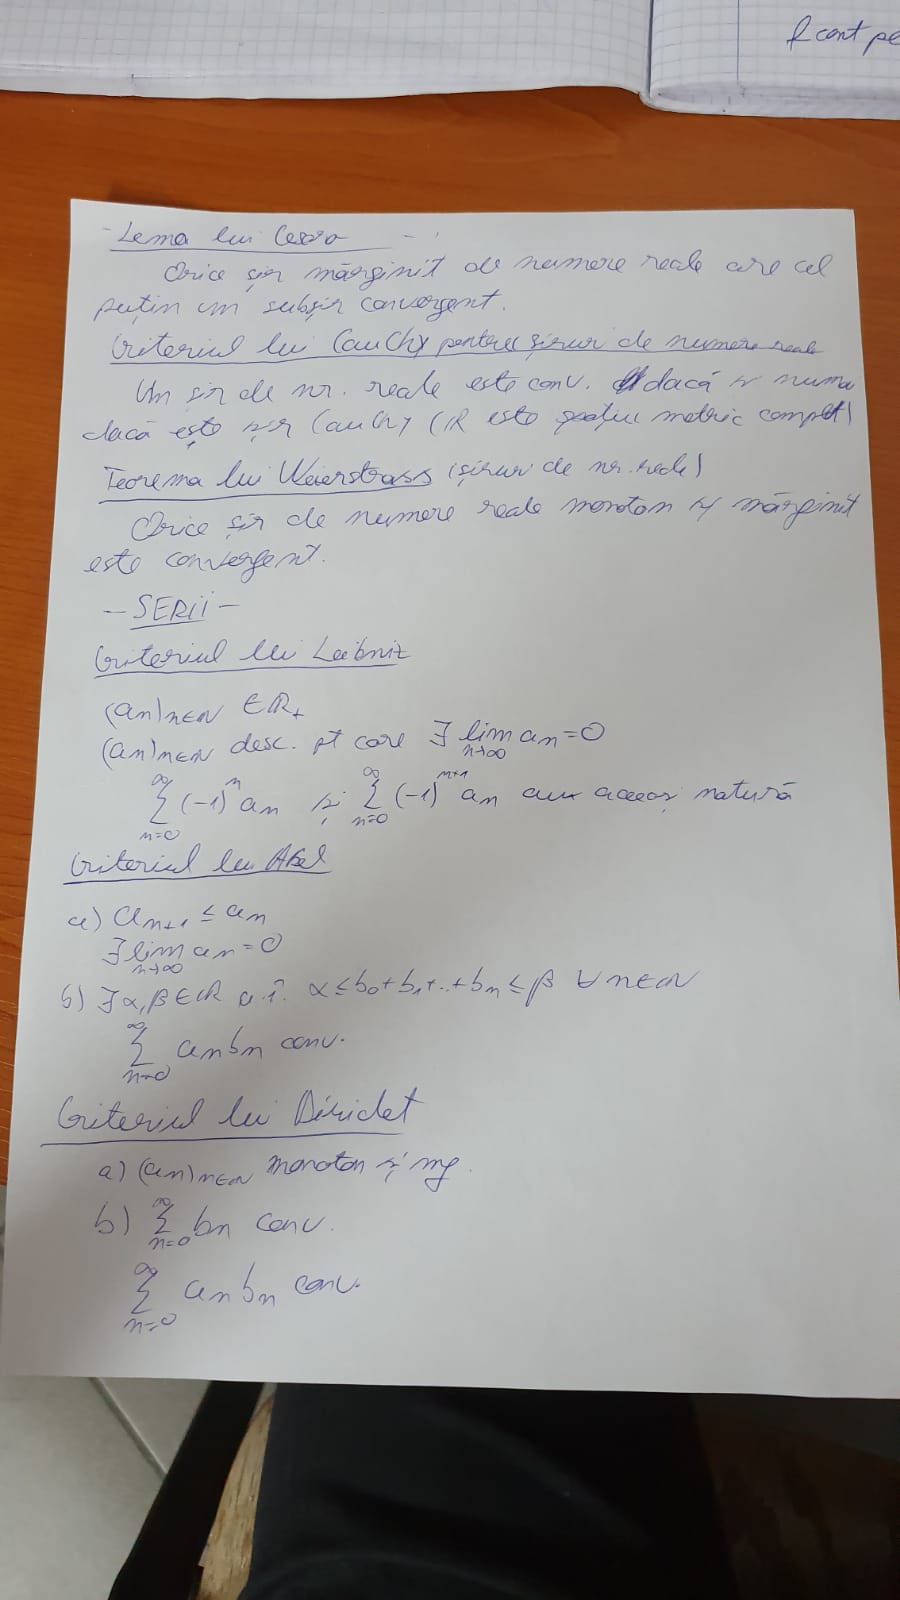 f cont pe
- Lema lui Cesaro
Orice șir mărginit de numere reale are cel
puțin un subșir convergent.
Criteriul lui Cauchy pentru șiruri de numere reale
Un șir de nr. reale este conv. dacă și numai
dacă este șir Cauchy (ℝ este spațiu metric complet)
Teorema lui Weierstrass (șiruri de nr. reale)
Orice șir de numere reale monoton și mărginit
este convergent.
— SERII —
Criteriul lui Leibniz
(an)n∈ℕ ∈ ℝ+
(an)n∈ℕ desc. pt care ∃ lim n→∞ an = 0
∑ n=0 ∞ (-1)^n an și ∑ n=0 ∞ (-1)^(n+1) an au aceeași natură
Criteriul lui Abel
a) an+1 ≤ an
∃ lim n→∞ an = 0
b) ∃ α, β ∈ ℝ a.î. α ≤ b0 + b1 + .. + bn ≤ β ∀ n∈ℕ
∑ n=0 ∞ an bn conv.
Criteriul lui Diriclet
a) (an)n∈ℕ monoton și mg.
b) ∑ n=0 ∞ bn conv.
∑ n=0 ∞ an bn conv.